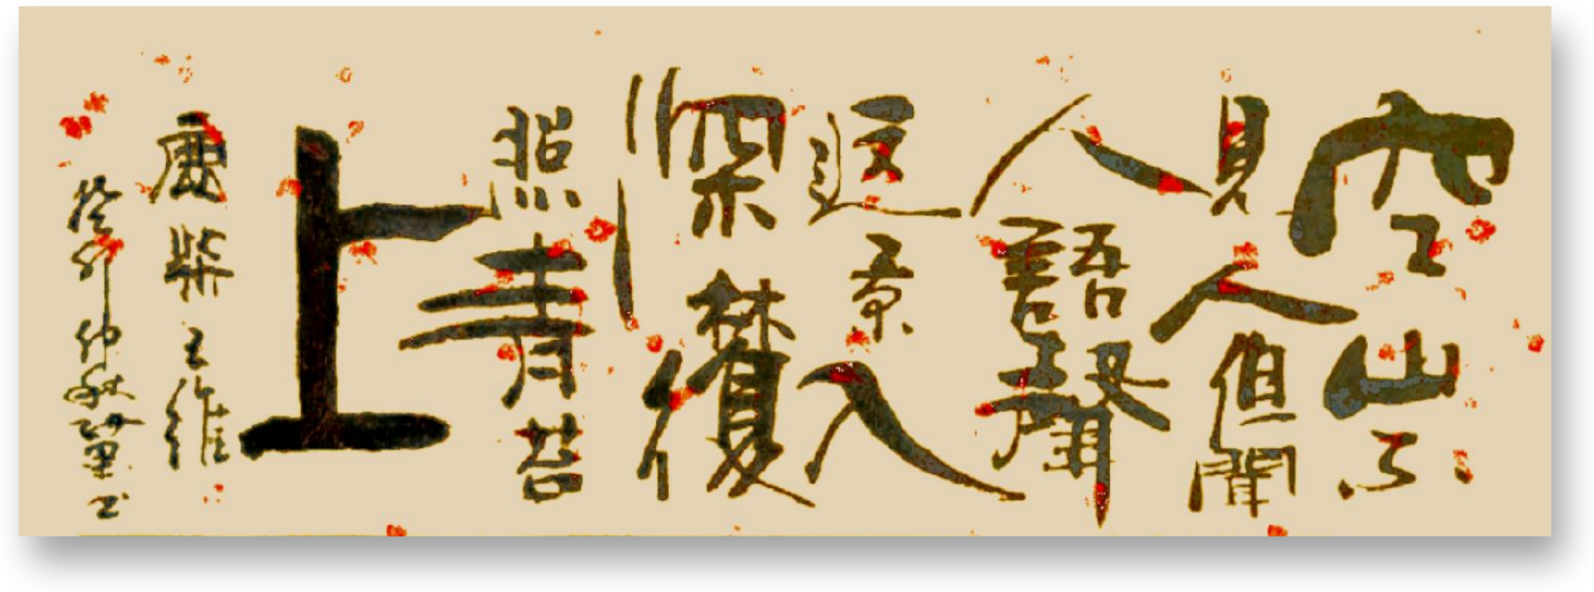 空山不
見人但聞
人語聲
返景入
深林復
照青苔
上
鹿柴王維
癸卯仲秋